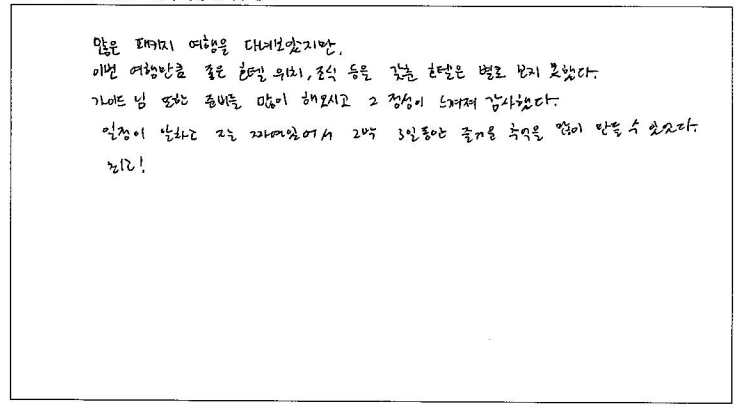 많은 패키지 여행을 다녀보았지만,
이번 여행만큼 좋은 호텔 위치, 조식 등을 갖춘 호텔은 별로 보지 못했다.
가이드 님 또한 준비를 많이 해오시고 그 정성이 느껴져 감사했다.
일정이 알차고 잘 짜여있어서 2박 3일동안 즐거운 추억을 많이 만들 수 있었다.
최고!